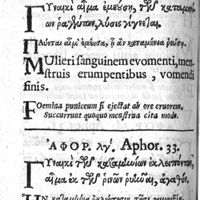 Γυναικὶ αἷμα ἐμεύσῃ, τῶν καταμη-
νίων ῥαγέντων, λύσις γίγνεται.
Mulieri sanguinem evomenti, men-
struis erumpentibus, vomendi
finis.
Foemina puniceum si ejectat ab ore cruorem,
Succurrunt quoquo menstrua cita modo.
ΑΦΟΡ. λγ'. Aphor. 33.
Γυναικὶ τῶν καταμηνίων ἐκλειπόντων,
αἷμα ἐκ τῶν ῥινῶν ῥυῆναι, ἀγαθόν.